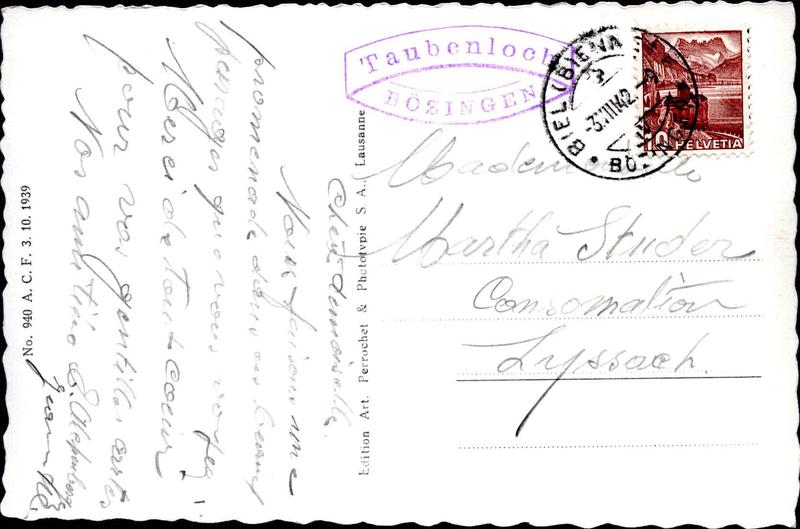 Taubenloch
BÖZINGEN
BIEL (BIENNE)
-3.VIII.42.-9
BÖZINGEN
10 HELVETIA
Mademoiselle
Martha Studer
Consomation
Lyssach.
Chère demoiselle.
Nous faisons une
promenade dans ces beaux
parages que vous voyez!
Merci de tout coeur
pour vos gentilles cartes
Nos amitiés E.
Edition Art. Perrochet & Phototypie S. A., Lausanne
No. 940 A. C. F. 3. 10. 1939